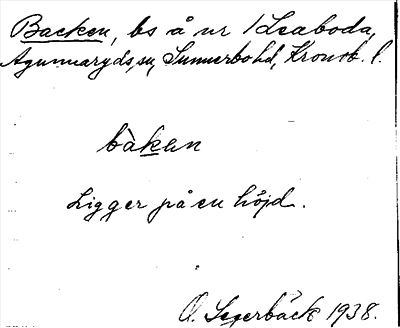 Backen, bs å nr 1 Leaboda,
Agunnaryds sn, Sunnerbo hd, Kronob. l.
bàkan
Ligger på en höjd.
O. Segerbäck 1938.